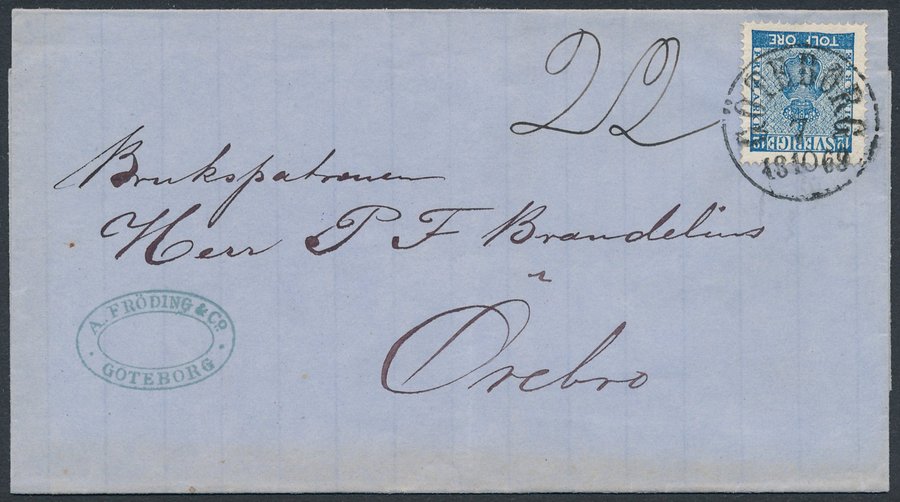 22
TOLF ÖRE
SVERIGE
GÖTEBORG
7
10
Brukspatronen
Herr P F Brandelius
Örebro
A. FRÖDING & Co.
GÖTEBORG